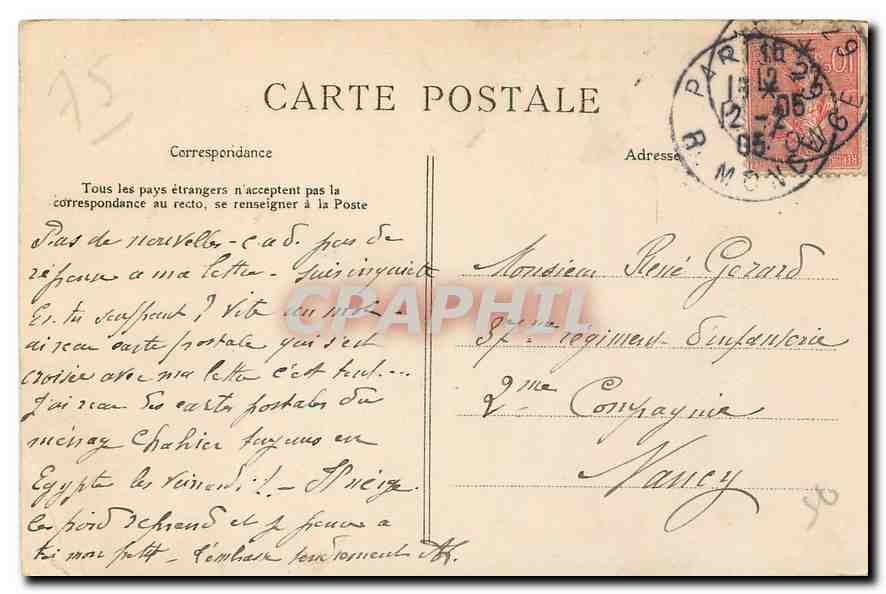 75
CARTE POSTALE
Correspondance
Tous les pays étrangers n'acceptent pas la
correspondance au recto, se renseigner à la Poste
Pas de nouvelles - c.a.d. pas de
réponse a ma lettre - suis inquiète
Es. tu souffrant ? Vite un mot -
ai reçu carte postale qui s'est
croisée avec ma lettre c'est tout...
J'ai reçu des cartes postales du
ménage Chahier toujours en
Egypte les veinards ! - Il neige
le froid reprend et je pense a
toi mon petit - t'embrasse tendrement
Adresse
PARIS
R. MONGE
Monsieur René Gérard
37me régiment d'infanterie
2me Compagnie
Nancy
50
CPAPHIL